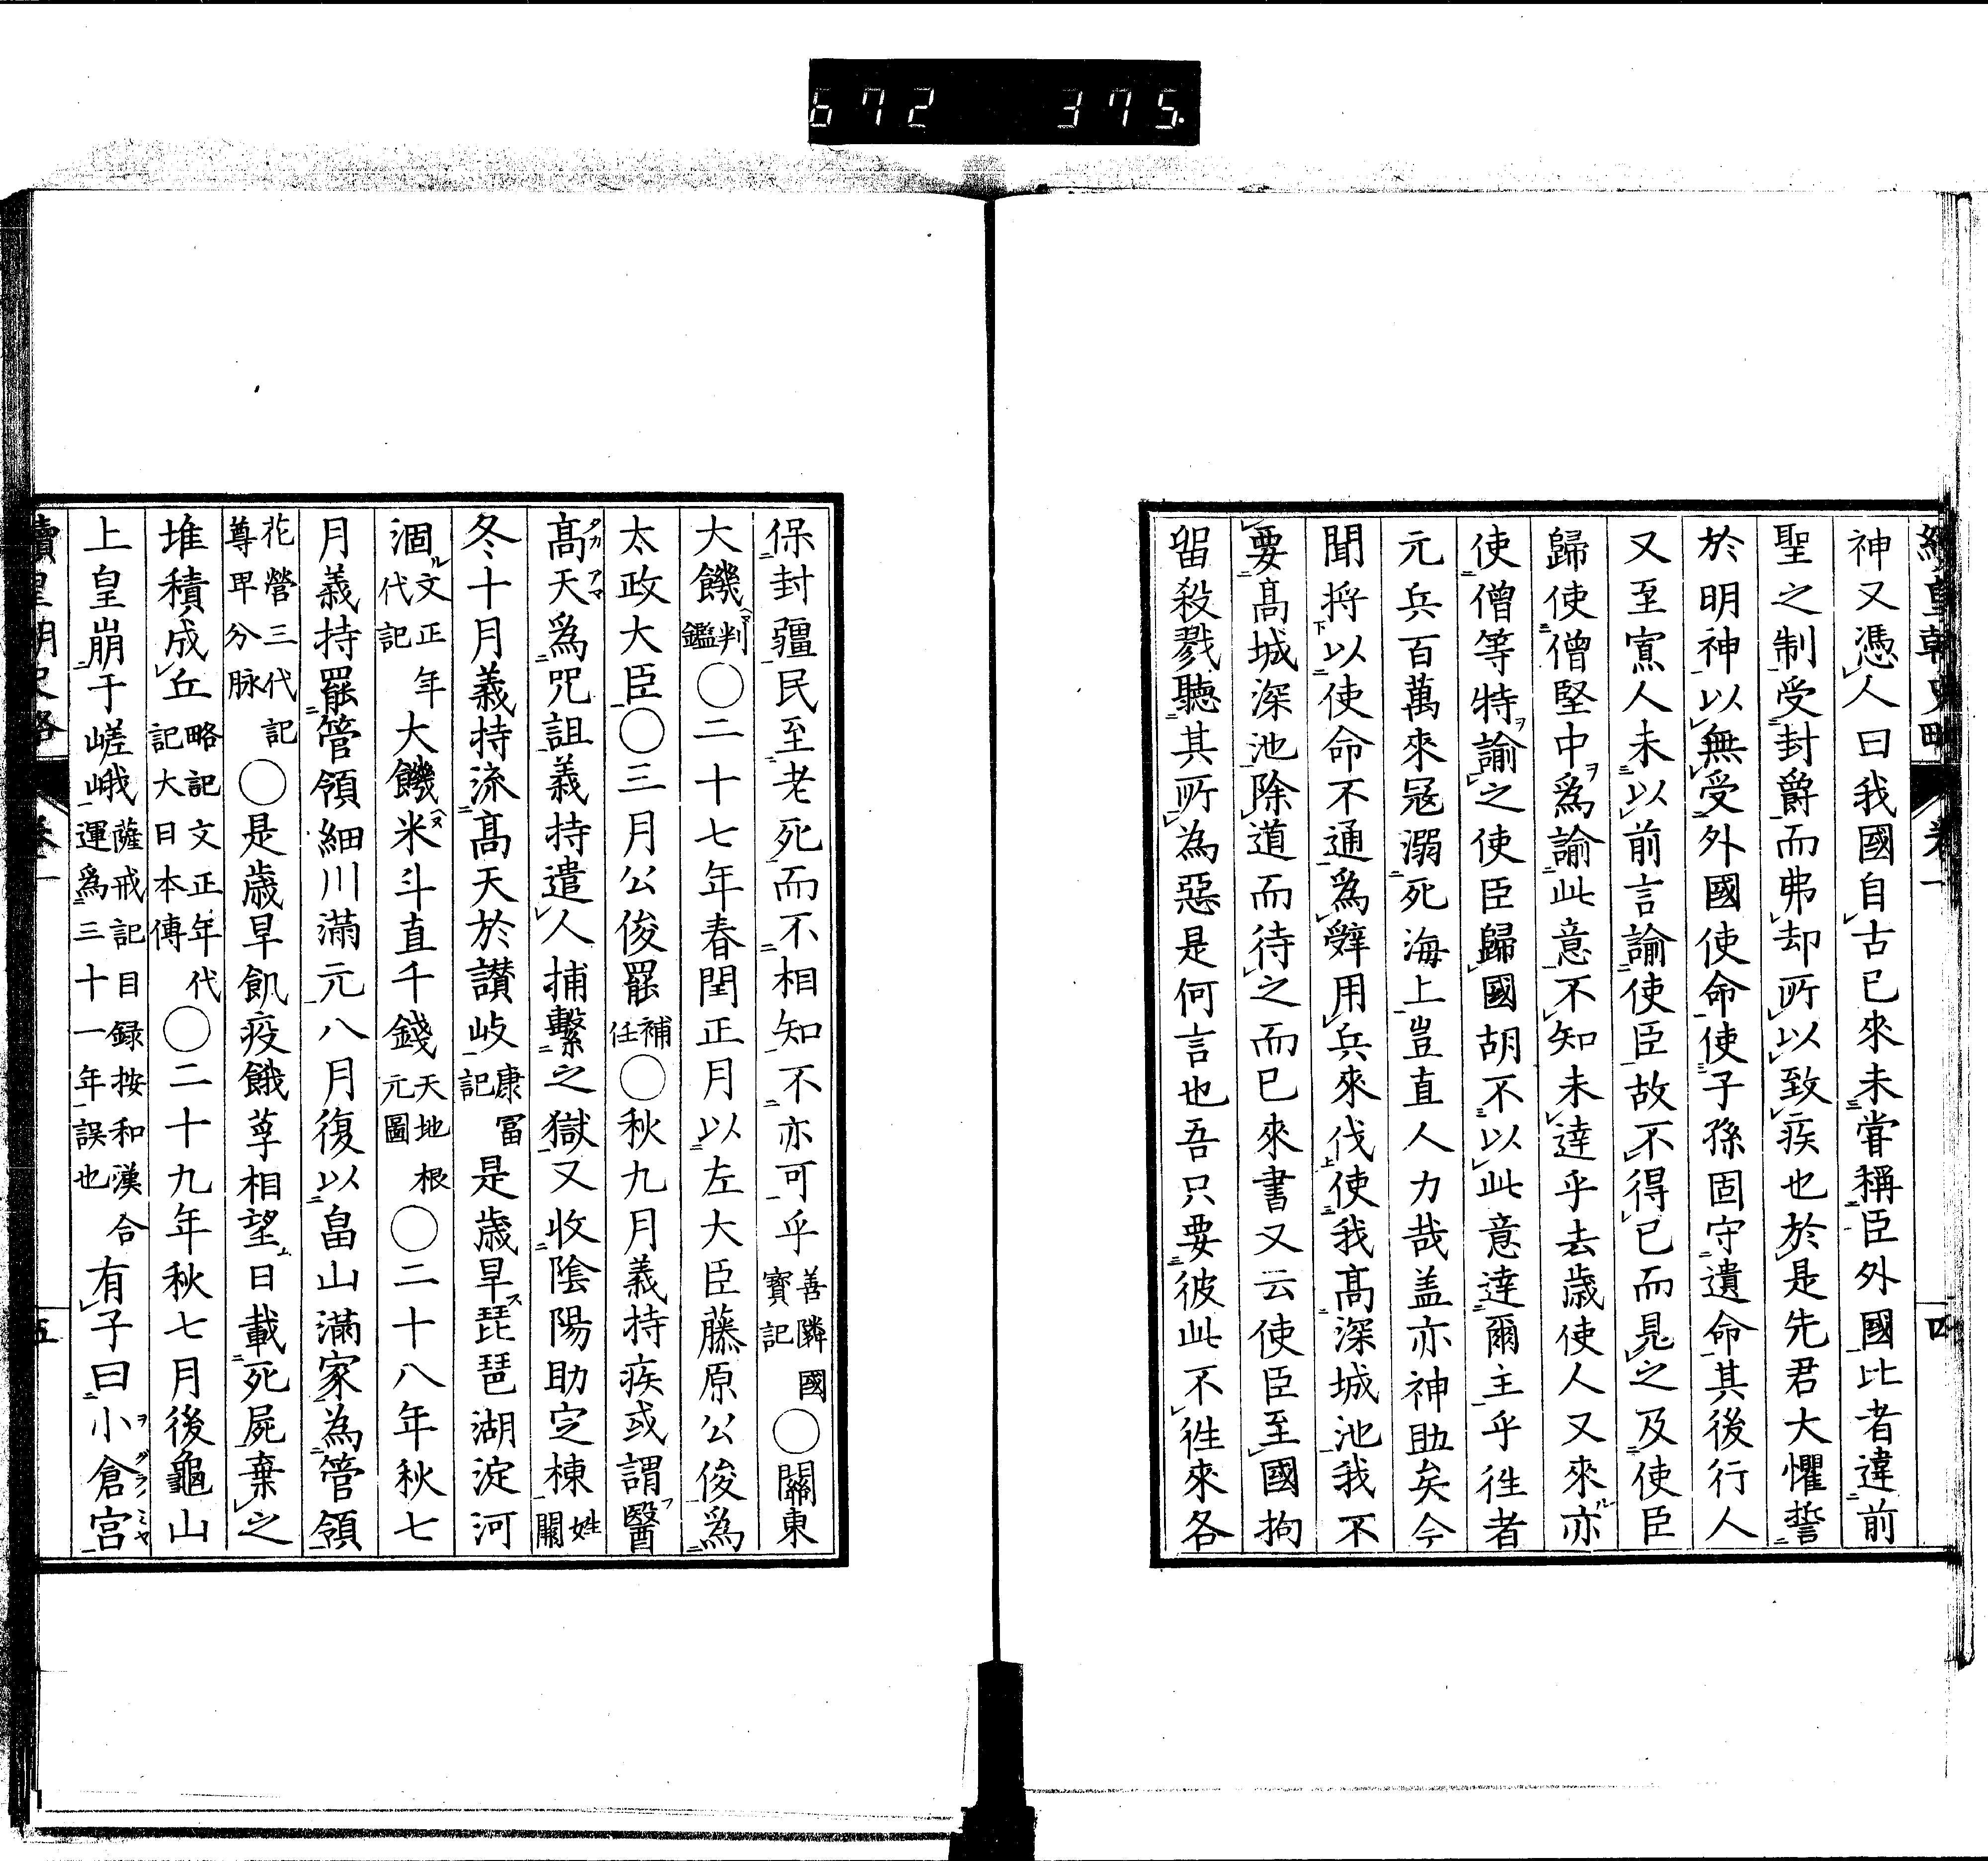 672 375.
續皇朝史略 卷一 四
神又憑人曰我國自古已來未甞稱臣外國比者違前
聖之制受封爵而弗却所以致疾也於是先君大懼誓
於明神以無受外國使命使子孫固守遺命其後行人
又至寡人未以前言諭使臣故不得已而見之及使臣
歸使僧堅中爲諭此意不知未達乎去歳使人又來亦
使僧等特諭之使臣歸國胡不以此意達爾主乎徃者
元兵百萬來冦溺死海上豈直人力哉盖亦神助矣今
聞將以使命不通爲辤用兵來伐使我髙深城池我不
要髙城深池除道而待之而已來書又云使臣至國拘
留殺戮聽其所為惡是何言也吾只要彼此不徃來各
保封疆民至老死而不相知不亦可乎善隣國寳記〇關東
大饑判鑑〇二十七年春閏正月以左大臣藤原公俊爲
太政大臣〇三月公俊罷補任〇秋九月義持疾或謂醫
髙天爲咒詛義持遣人捕繫之獄又收陰陽助定棟姓闕
冬十月義持流髙天於讃岐康冨記是歳旱琵琶湖淀河
涸文正年代記大饑米斗直千錢天地根元圖〇二十八年秋七
月義持罷管領細川滿元八月復以畠山滿家為管領
花營三代記尊卑分脉〇是歳旱飢疫餓莩相望日載死屍棄之
堆積成丘略記文正年代記大日本傳〇二十九年秋七月後龜山
上皇崩于嵯峨薩戒記目録按和漢合運爲三十一年誤也有子曰小倉宮
續皇朝史略 卷一 五